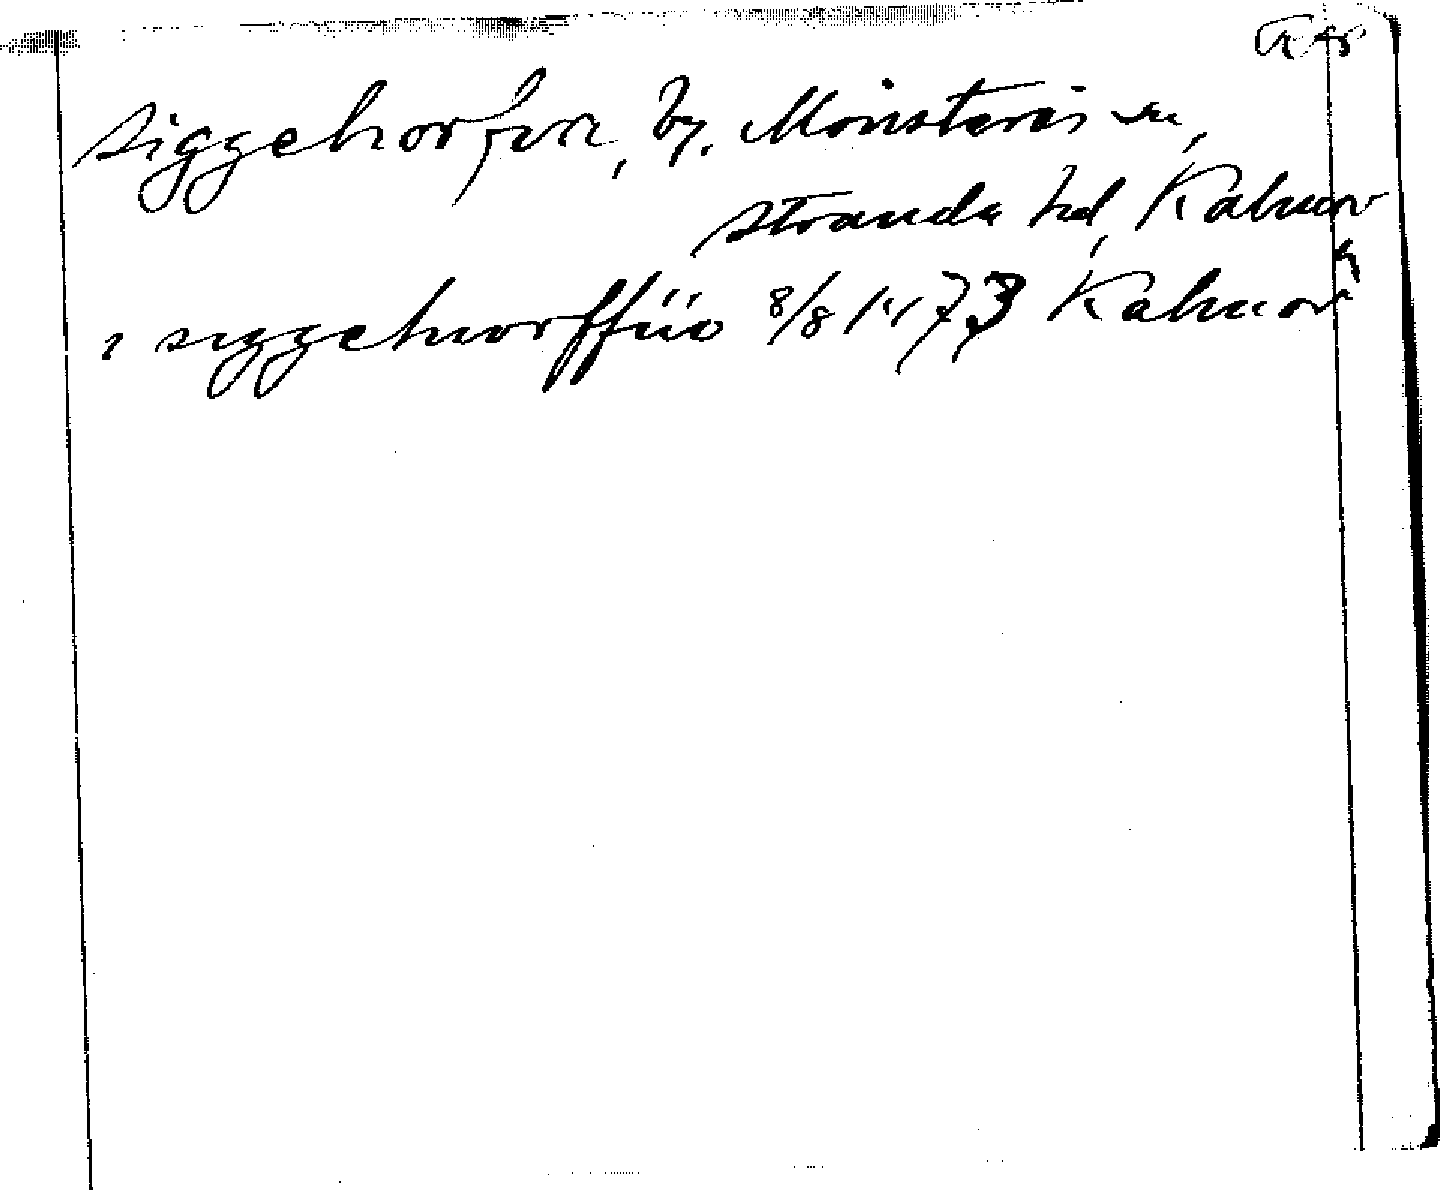 Siggehorfva, by, Mönsterås sn,
Stranda hd, Kalmar
i siggehorffuo 8/8 1473 Kalmar